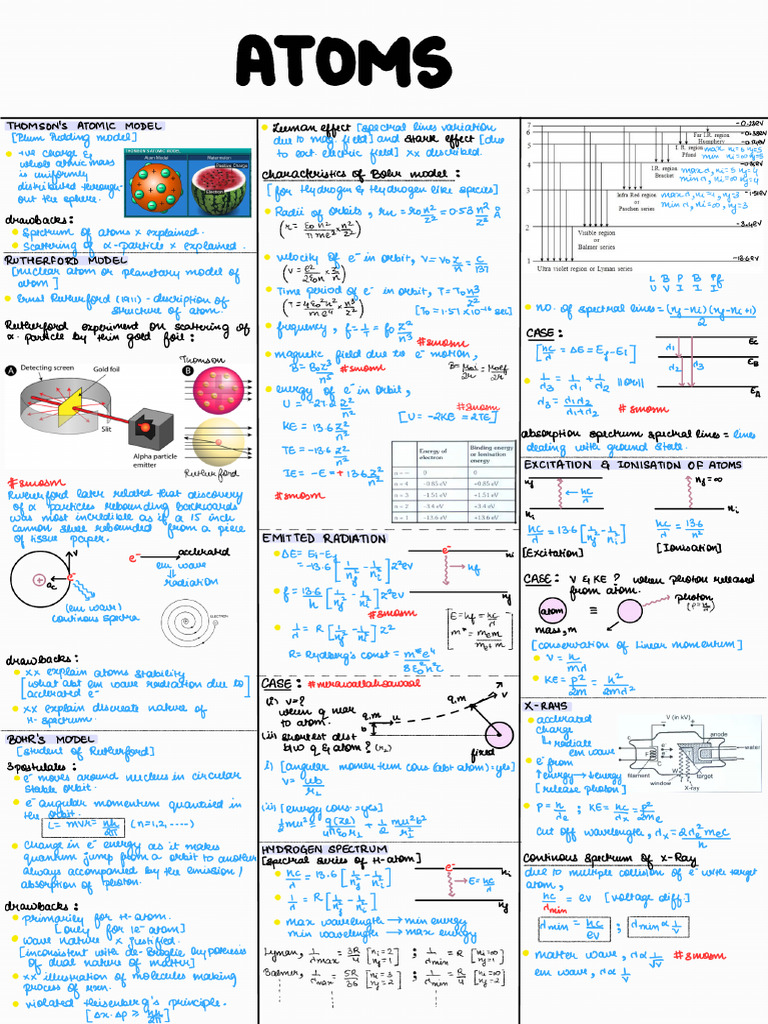 ATOMS
THOMSON'S ATOMIC MODEL
[Plum Pudding model]
+ve charge &
whole atomic mass
is uniformly
distributed through-
out the sphere.
THOMSON'S ATOMIC MODEL
Atom Model
Watermelon
Positive Charge
Electron
drawbacks:
Spectrum of atoms × explained.
Scattering of α-particle × explained.
RUTHERFORD MODEL
[nuclear atom or planetary model of
atom]
Ernst Rutherford (1911) - description of
structure of atom.
Rutherford experiment on scattering of
α-particle by thin gold foil:
A
Detecting screen
Gold foil
Slit
Alpha particle
emitter
B
Thomson
Rutherford
#smosm
Rutherford later related that discovery
of α particles rebounding backwards
was most incredible as if a 15 inch
cannon shell rebounded from a piece
of tissue paper.
v
e⁻
+
ac
(em wave)
continous spectra
e⁻
accelerated
em wave
radiation
ELECTRON
drawbacks:
×× explain atoms stability
[what abt em wave radiation due to]
accelerated e⁻
×× explain discreate nature of
H-spectrum.
BOHR'S MODEL
[student of Rutherford]
3 postulates:
e⁻ moves around nucleus in circular
stable orbit.
e⁻ angular momentum quantised in
the orbit.
L = mvr = nh/2π (n=1,2,----)
Change in e⁻ energy as it makes
quantum jump from a orbit to another
always accompanied by the emission/
absorption of photon.
drawbacks:
primarily for H-atom.
[only for 1e⁻ atom]
wave nature × justified.
[inconsistent with de-Broglie, hypothesis
of dual nature of matter]
×× illustration of molecules making
process of rxn.
violated Heisenberg's principle.
[Δx.Δp ≥ h/2π]
Zeeman effect [spectral lines variation
due to mag. field] and stark effect [due
to ext. electric field] ×× described.
characteristics of Bohr model:
[for Hydrogen & Hydrogen like species]
Radii of orbits, rn = r0 n²/z = 0.53 n²/z Å
velocity of e⁻ in orbit, V = V0 z/n = c/137
Time period of e⁻ in orbit, T = T0 n³/z²
[T0 = 1.51 × 10⁻¹⁶ sec]
frequency, f = 1/T = f0 z²/n³
#smosm
magnetic field due to e⁻ motion,
B = B0 z³/n⁵ #smosm
energy of e⁻ in orbit,
#smosm
U = -27.2 z²/n²
[U = -2KE = 2TE]
KE = 13.6 z²/n²
TE = -13.6 z²/n²
IE = -E = +13.6 z²/n²
#smosm
Energy of electron
Binding energy or Ionisation energy
n = ∞ 0 0
n = 4 −0.85 eV +0.85 eV
n = 3 −1.51 eV +1.51 eV
n = 2 −3.4 eV +3.4 eV
n = 1 −13.6 eV +13.6 eV
EMITTED RADIATION
ΔE = Ei - Ef
= -13.6 [1/nf² - 1/ni²] z² ev
e⁻
ni
hf
nf
f = 13.6/h [1/nf² - 1/ni²] z² ev
#smosm
1/λ = R [1/nf² - 1/ni²] z²
[E = hf = hc/λ
m* = me m/me+m]
R = Rydberg's const = m*e⁴/8ε0²h³c
CASE: #merawallahisawaal
(i) v=?
when q near
to atom.
(ii) shortest dist
b/w q & atom? (r2)
q.m
u
b
q.m
v
fixed
i) [angular momentum cons (abt atom) = yes]
V = ub/r2
(ii) [energy cons. = yes]
HYDROGEN SPECTRUM
[spectral series of H-atom]
hc/λ = 13.6 [1/nf² - 1/ni²]
e⁻
ni
E = hc/λ
nf
1/λ = R [1/nf² - 1/ni²]
max wavelength → min energy
min wavelength → max energy
Lyman, 1/λmax = 3R/4 [ni=2 nf=1] ; 1/λmin = R [ni=∞ nf=1]
Balmer, 1/λmax = 5R/36 [ni=3 nf=2] ; 1/λmin = R/4 [ni=∞ nf=2]
7
6
5
4
3
2
1
-0.28eV
-0.38eV
-3.4eV
-13.6eV
Far I.R. region
Humphery
I. R. region
Pfund
I.R. region
Bracket
max λ, ni=5, nf=4
min λ, ni=∞, nf=4
Infra Red region
or
Paschen series
Visible region
or
Balmer series
Ultra violet region or Lyman series
L B P B Pf
U V I I I
no. of spectral lines = (nf-ni)(nf-ni+1)/2
CASE:
[hc/λ = ΔE = Ef - Ei]
λ1
λ2
λ3
EC
EB
EA
1/λ3 = 1/λ1 + 1/λ2
λ3 = λ1λ2/λ1+λ2
#smosm
absorption spectrum spectral lines = lines
dealing with ground state.
EXCITATION & IONISATION OF ATOMS
nf
hc/λ
ni
hc/λ = 13.6 [1/nf² - 1/ni²]
[Excitation]
nf = ∞
ni
hc/λ = 13.6/n²
[Ionisation]
CASE: V & KE? when photon released
from atom.
atom
mass, m
≡
photon
(P=h/λ)
[conservation of Linear momentum]
V = h/mλ
KE = p²/2m = h²/2mλ²
X-RAYS
accelerated
charge
radiate
em wave
e⁻ from
↑energy → ↓energy
[release photon]
V (in kV)
anode
water
F
C
filament
W
target
window
X-ray
P = h/λe ; KE = hc/λx = p²/2me
cut off wavelength, λx = 2λe²mec/h
Continuous spectrum of X-Ray
due to multiple collision of e⁻ with target
atom,
hc/λmin = ev [voltage diff]
λmin = hc/ev ; λmin α 1/v
matter wave, λ α 1/√v #smosm
em wave, λ α 1/v